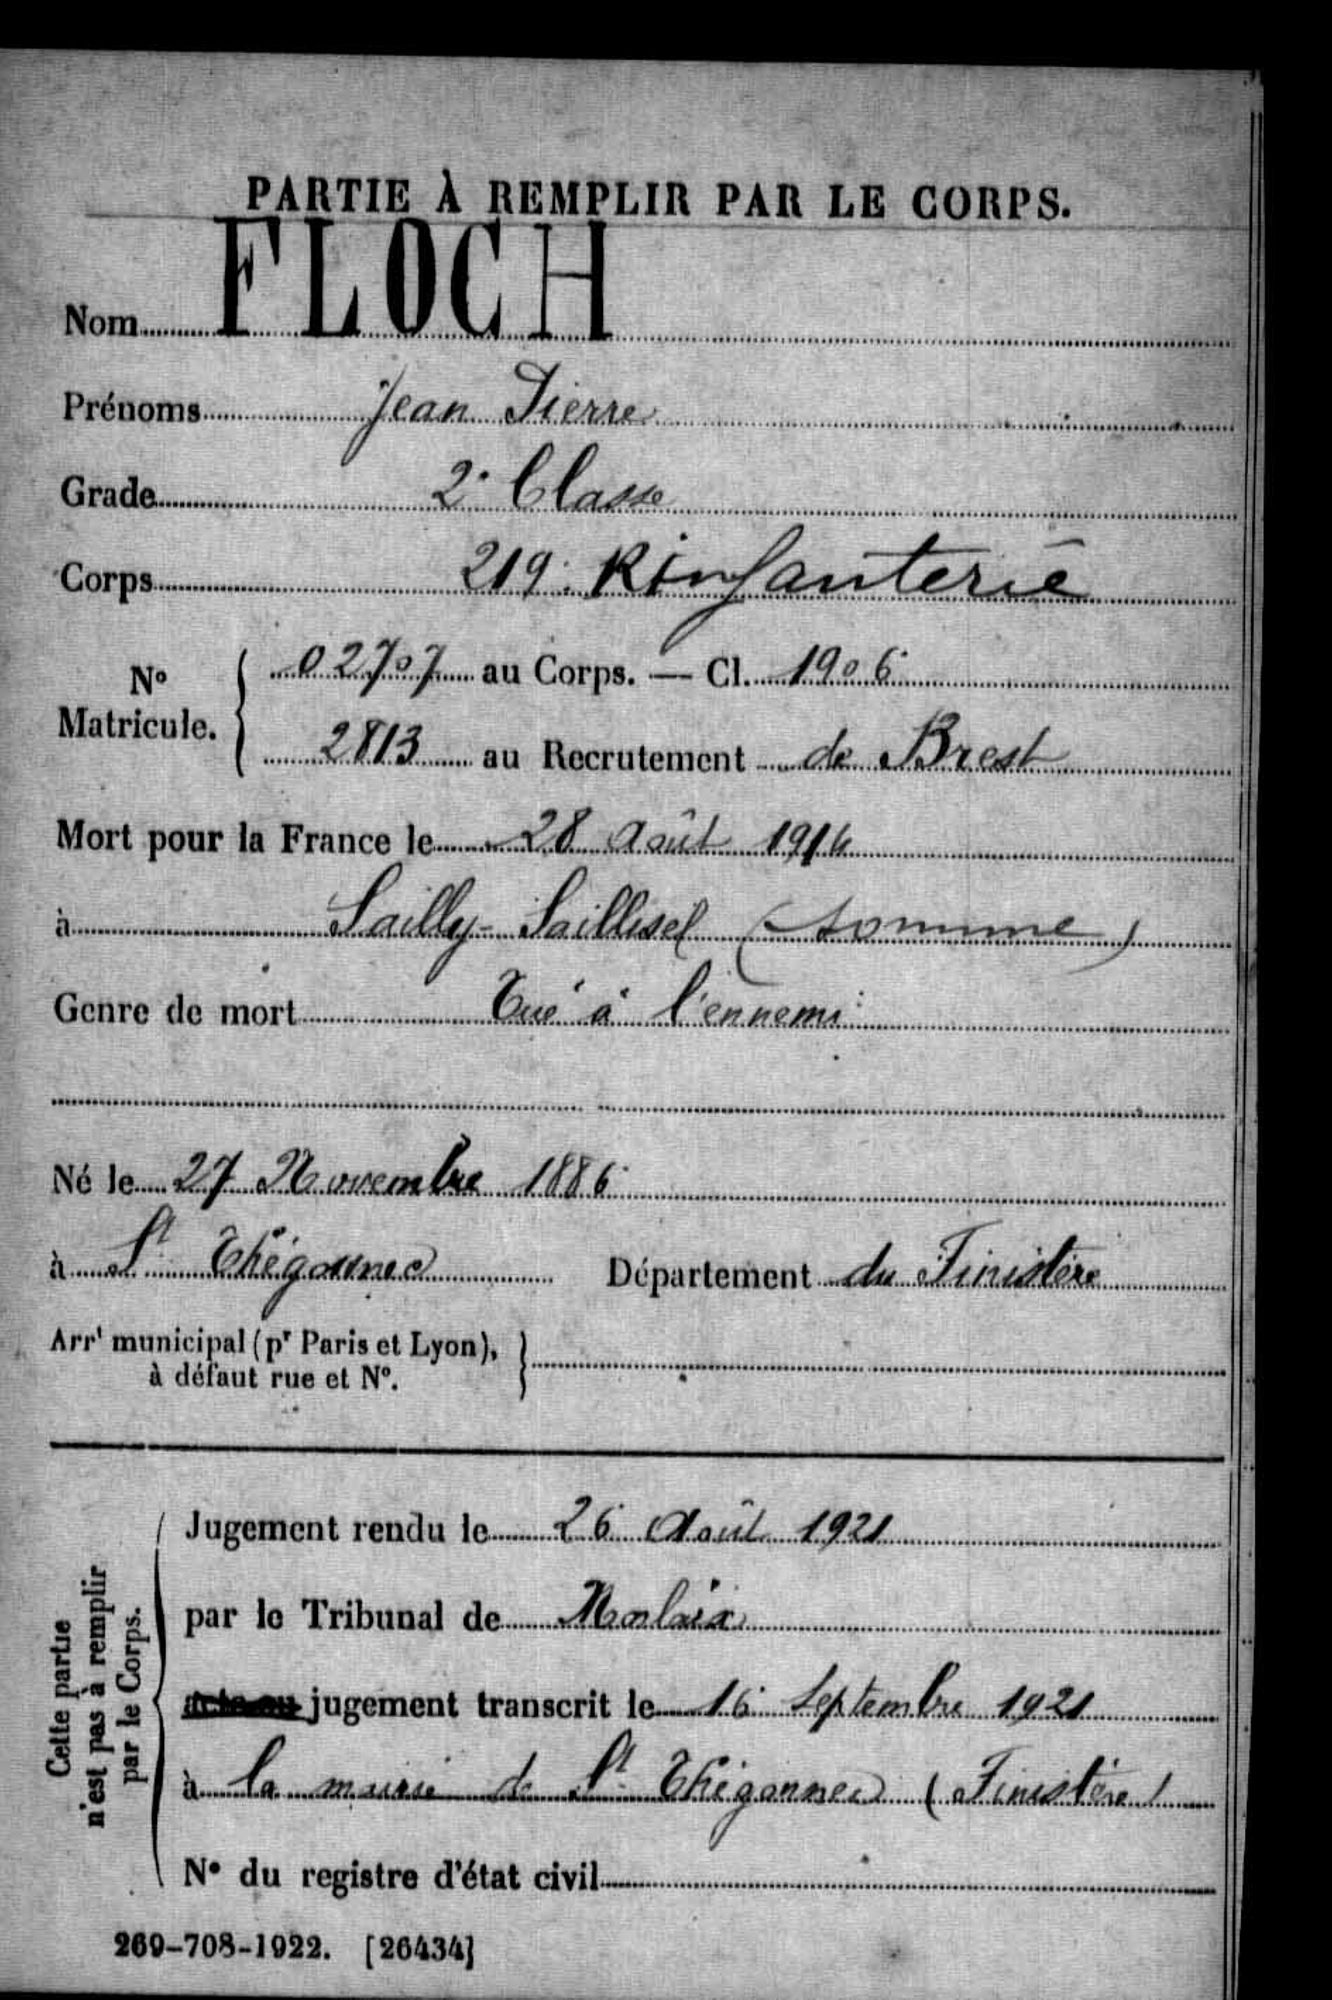 PARTIE À REMPLIR PAR LE CORPS.
Nom FLOCH
Prénoms Jean Pierre
Grade 2e Classe
Corps 219e R Infanterie
No Matricule. { 02707 au Corps. — Cl. 1906
2813 au Recrutement de Brest
Mort pour la France le 28 Août 1914
à Sailly-Saillisel (Somme)
Genre de mort Tué à l'ennemi
Né le 27 Novembre 1886
à St Thégonnec Département du Finistère
Arrt municipal (pr Paris et Lyon), }
à défaut rue et No.
Cette partie
n'est pas à remplir
par le Corps.
Jugement rendu le 26 Août 1921
par le Tribunal de Morlaix
acte ou jugement transcrit le 16 Septembre 1921
à la mairie de St Thégonnec (Finistère)
No du registre d'état civil
269-708-1922. [26434]